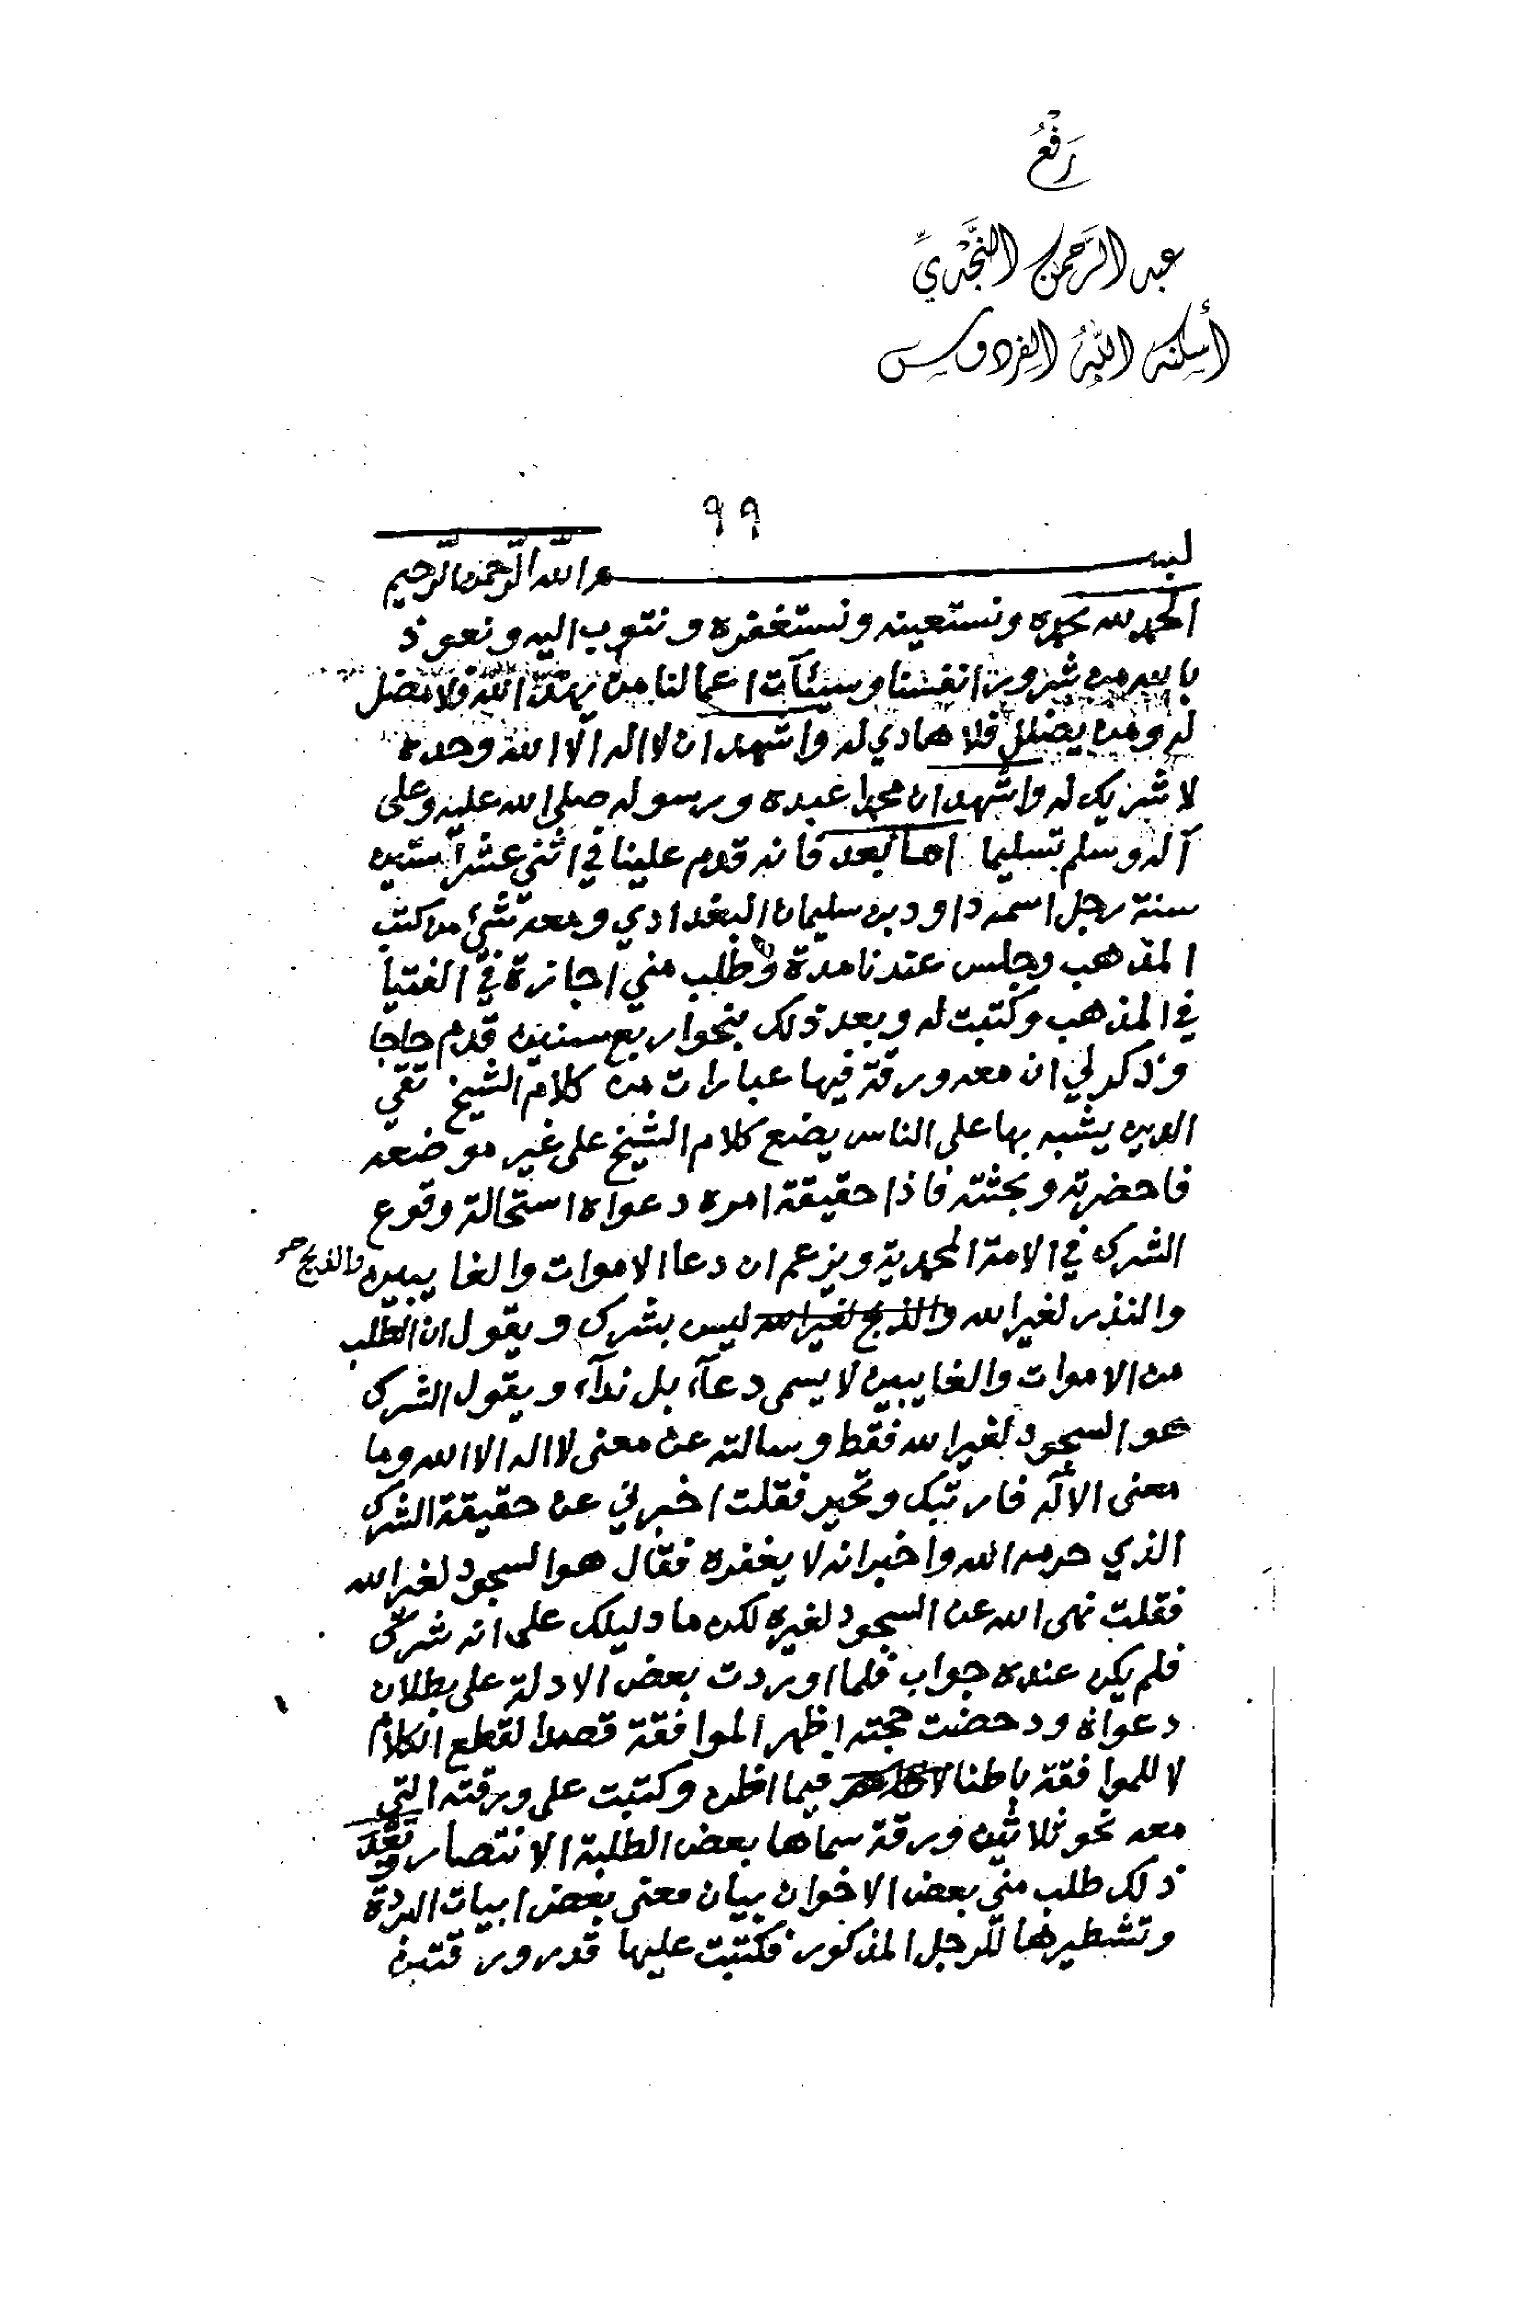 رَفْعُ
عبد الرَّحمن النَّجْديِّ
أسكنه اللهُ الفردوس
٩٩
بسم الله الرّحمن الرّحيم
الحمد لله نحمده ونستعينه ونستغفره ونتوب اليه ونعوذ
بالله من شرور انفسنا وسيئآت اعمالنا من يهد الله فلا مضل
له ومن يضلل فلا هادي له واشهد ان لا اله الا الله وحده
لا شريك له واشهد ان محمدا عبده ورسوله صلى الله عليه وعلى
آله وسلم تسليما اما بعد فانه قدم علينا في اثني عشر ستين
سنة رجل اسمه داود بن سليمان البغدادي ومعه شئ من كتب
المذهب وجلس عندنا مدة وطلب مني اجازة في الفتيا
في المذهب وكتبت له وبعد ذلك بنحو اربع سنين قدم حاجا
وذكر لي ان معه ورقة فيها عبارات من كلام الشيخ تقي
الدين يشبه بها على الناس يضع كلام الشيخ على غير موضعه
فاحضرته وبحثته فاذا حقيقة امره دعواه استحالة وقوع
الشرك في الامة المحمدية ويزعم ان دعا الاموات والغايبين والذبح صح
والنذر لغير الله والذبح لغير الله ليس بشرك ويقول ان الطلب
من الاموات والغايبين لا يسمى دعآء بل ندآء ويقول الشرك
هو السجود لغير الله فقط وسالته عن معنى لا اله الا الله وما
معنى الاله فارتبك وتحير فقلت اخبرني عن حقيقة الشرك
الذي حرمه الله واخبر انه لا يغفره فقال هو السجود لغير الله
فقلت نهى الله عن السجود لغيره لكن ما دليلك على انه شرك
فلم يكن عنده جواب فلما اوردت بعض الادلة على بطلان
دعواه ودحضت حجته اظهر الموافقة قصدا لقطع الكلام
لا للموافقة باطنا فيما اظن وكتبت على ورقته التي
معه نحو ثلاثين ورقة سماها بعض الطلبة الانتصار وبعد
ذلك طلب مني بعض الاخوان بيان معنى بعض ابيات البردة
وتشطيرها للرجل المذكور فكتبت عليها قدر ورقتين